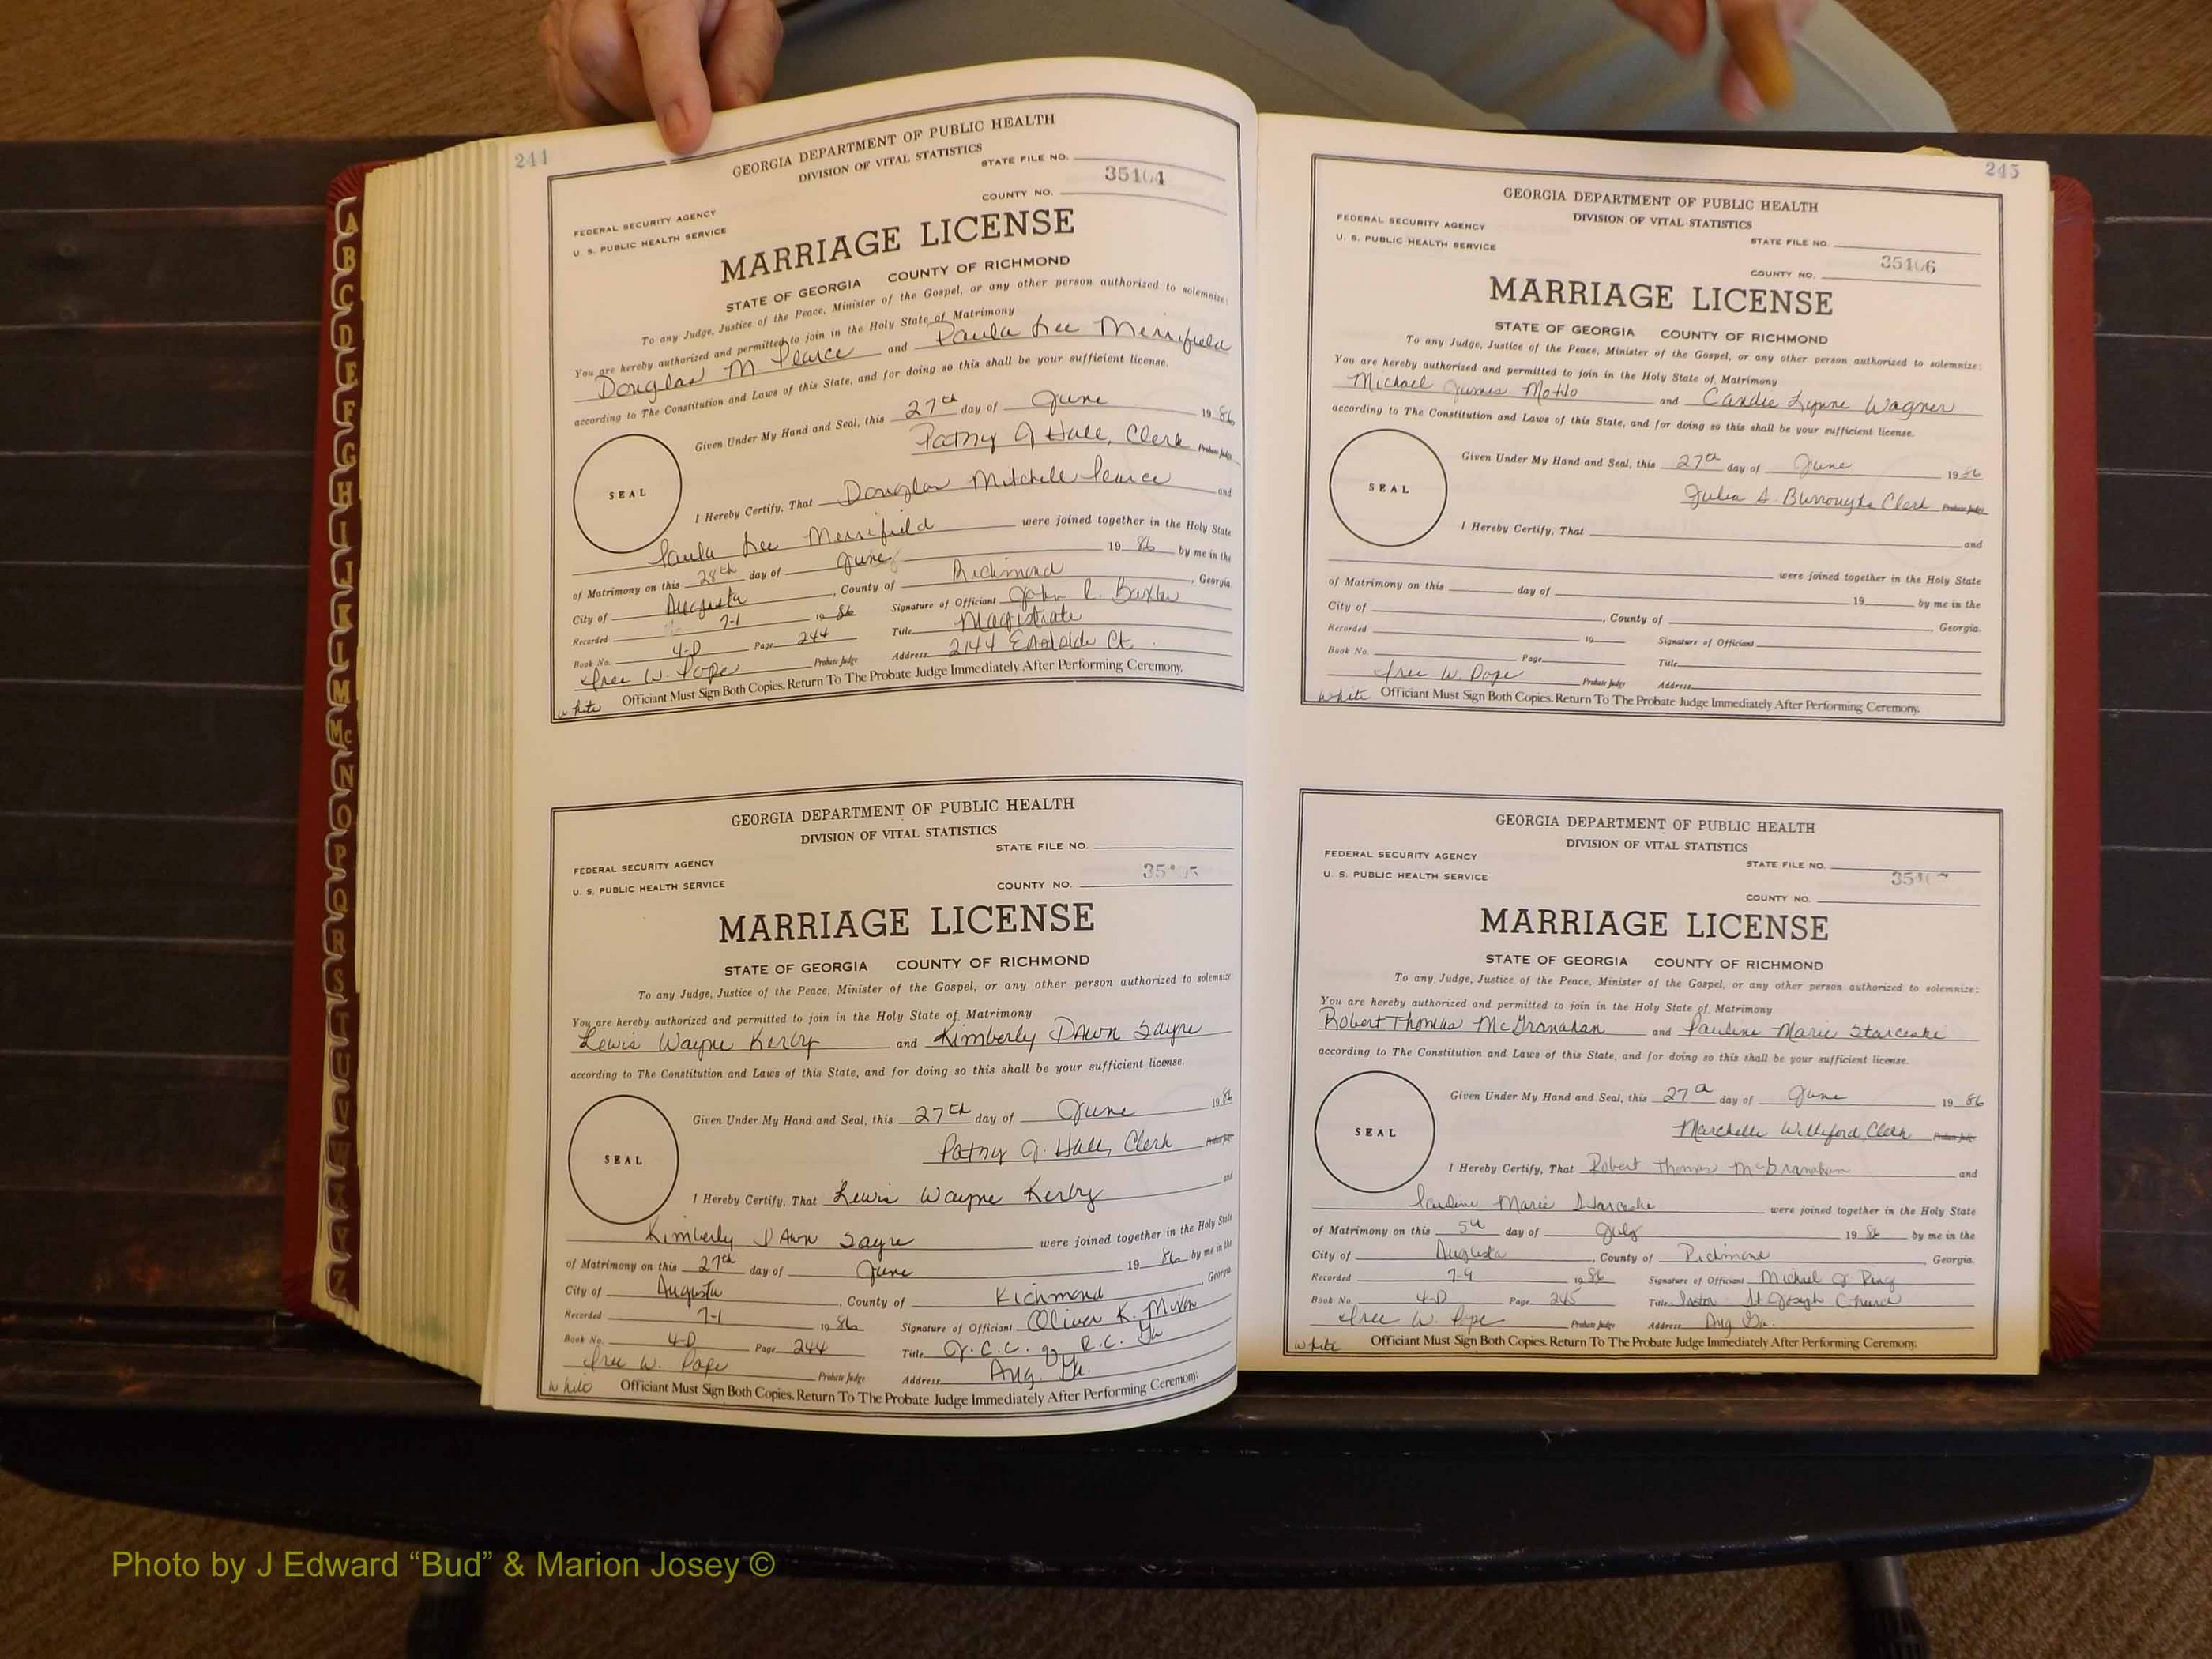 244
GEORGIA DEPARTMENT OF PUBLIC HEALTH
DIVISION OF VITAL STATISTICS
STATE FILE NO.
35104
COUNTY NO.
FEDERAL SECURITY AGENCY
U. S. PUBLIC HEALTH SERVICE
MARRIAGE LICENSE
STATE OF GEORGIA COUNTY OF RICHMOND
To any Judge, Justice of the Peace, Minister of the Gospel, or any other person authorized to solemnize:
You are hereby authorized and permitted to join in the Holy State of Matrimony
Douglas M Pearce and Paula Lee Merrifield
according to The Constitution and Laws of this State, and for doing so this shall be your sufficient license.
Given Under My Hand and Seal, this 27th day of June 19 86
Patsy J Hall, Clerk Probate Judge
SEAL
I Hereby Certify, That Douglas Mitchell Pearce and
Paula Lee Merrifield were joined together in the Holy State
of Matrimony on this 28th day of June 19 86 by me in the
City of Augusta, County of Richmond, Georgia
Recorded 7-1 19 86 Signature of Officiant John R. Baxter
Book No. 4-D Page 244 Title Magistrate
Probate Judge Address 2144 Ct.
W. Pope
White Officiant Must Sign Both Copies. Return To The Probate Judge Immediately After Performing Ceremony.
GEORGIA DEPARTMENT OF PUBLIC HEALTH
DIVISION OF VITAL STATISTICS
STATE FILE NO.
FEDERAL SECURITY AGENCY
U. S. PUBLIC HEALTH SERVICE
COUNTY NO.
MARRIAGE LICENSE
STATE OF GEORGIA COUNTY OF RICHMOND
To any Judge, Justice of the Peace, Minister of the Gospel, or any other person authorized to solemnize
You are hereby authorized and permitted to join in the Holy State of Matrimony
Lewis Wayne Kerby and Kimberly DAwn Sayre
according to The Constitution and Laws of this State, and for doing so this shall be your sufficient license.
Given Under My Hand and Seal, this 27th day of June 19 86
Patsy J. Hall, Clerk Probate Judge
SEAL
I Hereby Certify, That Lewis Wayne Kerby and
Kimberly DAwn Sayre were joined together in the Holy State
of Matrimony on this 27th day of June 19 86 by me in the
City of Augusta, County of Richmond, Georgia
Recorded 7-1 19 86 Signature of Officiant Oliver K. Mixon
Book No. 4-D Page 244 Title J. C. C. of R.C. Ga
W. Pope Probate Judge Address Aug. Ga.
White Officiant Must Sign Both Copies. Return To The Probate Judge Immediately After Performing Ceremony.
245
GEORGIA DEPARTMENT OF PUBLIC HEALTH
DIVISION OF VITAL STATISTICS
FEDERAL SECURITY AGENCY
U. S. PUBLIC HEALTH SERVICE
STATE FILE NO.
35106
COUNTY NO.
MARRIAGE LICENSE
STATE OF GEORGIA COUNTY OF RICHMOND
To any Judge, Justice of the Peace, Minister of the Gospel, or any other person authorized to solemnize:
You are hereby authorized and permitted to join in the Holy State of Matrimony
Michael James and Candie Lynne Wagner
according to The Constitution and Laws of this State, and for doing so this shall be your sufficient license.
Given Under My Hand and Seal, this 27th day of June 19 86
Julia S. Burroughs Clerk Probate Judge
SEAL
I Hereby Certify, That and
were joined together in the Holy State
of Matrimony on this day of 19 by me in the
City of , County of , Georgia.
Recorded 19 Signature of Officiant
Book No. Page Title
W. Pope Probate Judge Address
White Officiant Must Sign Both Copies. Return To The Probate Judge Immediately After Performing Ceremony.
GEORGIA DEPARTMENT OF PUBLIC HEALTH
DIVISION OF VITAL STATISTICS
FEDERAL SECURITY AGENCY
U. S. PUBLIC HEALTH SERVICE
STATE FILE NO.
COUNTY NO.
MARRIAGE LICENSE
STATE OF GEORGIA COUNTY OF RICHMOND
To any Judge, Justice of the Peace, Minister of the Gospel, or any other person authorized to solemnize:
You are hereby authorized and permitted to join in the Holy State of Matrimony
Robert Thomas McGranahan and Pauline Marie Starceski
according to The Constitution and Laws of this State, and for doing so this shall be your sufficient license.
Given Under My Hand and Seal, this 27th day of June 19 86
Marchelle Williford, Clerk Probate Judge
SEAL
I Hereby Certify, That Robert Thomas McGranahan and
Pauline Marie Starceski were joined together in the Holy State
of Matrimony on this 5th day of July 19 86 by me in the
City of Augusta, County of Richmond, Georgia.
Recorded 7-9 19 86 Signature of Officiant Michael J
Book No. 4-D Page 245 Title Pastor St Joseph Church
W. Pope Probate Judge Address Aug Ga.
White Officiant Must Sign Both Copies. Return To The Probate Judge Immediately After Performing Ceremony.
A
B
C
D
E
F
G
H
I
J
K
L
M
Mc
N
O
P
Q
R
S
T
U
V
W
X
Y
Z
Photo by J Edward “Bud” & Marion Josey ©